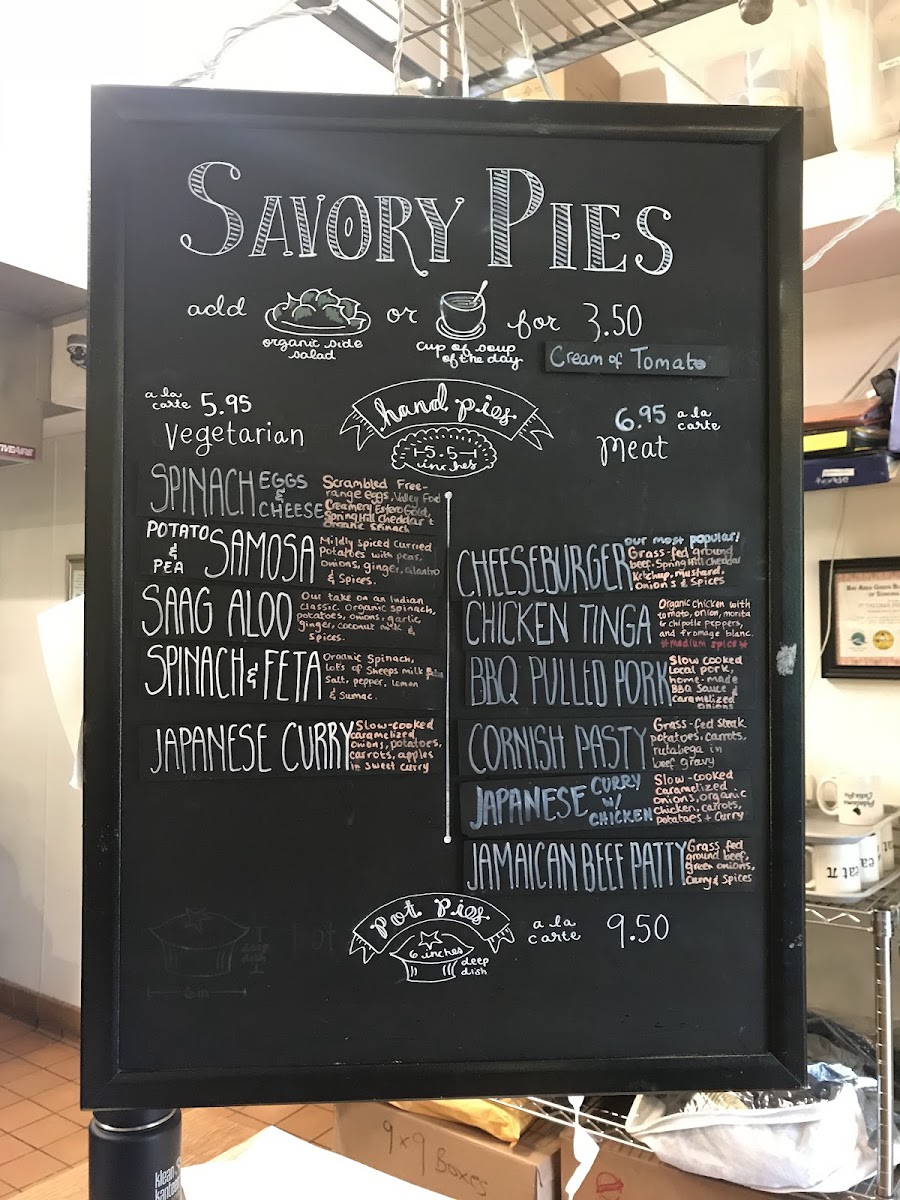 SAVORY PIES
add
organic side
salad
or
cup of soup
of the day
for 3.50
Cream of Tomato
a la
carte 5.95
Vegetarian
hand pies
5.5
inches
6.95 a la
carte
Meat
SPINACH EGGS
&
CHEESE
Scrambled Free-
range eggs, Valley Ford
Creamery Estero Gold,
Spring Hill Cheddar &
organic Spinach
POTATO
&
PEA
SAMOSA
Mildly spiced curried
Potatoes with peas,
onions, ginger, cilantro
& Spices.
SAAG ALOO
Our take on an Indian
classic. Organic spinach,
potatoes, onions, garlic,
ginger, coconut milk &
spices.
SPINACH & FETA
Organic Spinach,
lots of sheeps milk
Salt, pepper, lemon
& Sumac.
JAPANESE CURRY
Slow-cooked
caramelized
onions, potatoes,
carrots, apples
in sweet curry
our most popular!
CHEESEBURGER
Grass-fed ground
beef, Spring Hill cheddar
Ketchup, mustard,
onions & Spices
CHICKEN TINGA
Organic chicken with
tomato, onion, morita
& chipotle peppers,
and fromage blanc.
*medium spice*
BBQ PULLED PORK
Slow cooked
local pork,
home-made
BBQ Sauce &
caramelized
onions
CORNISH PASTY
Grass-fed steak
potatoes, carrots,
rutabega in
beef gravy
JAPANESE CURRY
W/
CHICKEN
Slow-cooked
caramelized
onions, organic
chicken, carrots,
potatoes + curry
JAMAICAN BEEF PATTY
Grass fed
ground beef,
green onions,
curry & Spices
pot pies
6 inches
deep
dish
a la
carte
9.50
6 in
klean
kanteen
9x9 Boxes
eat π